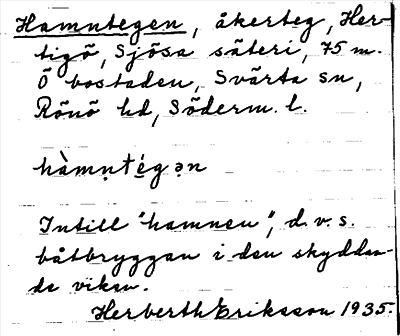 Hamntegen, åkerteg, Her-
tigö, Sjösa säteri, 75 m.
Ö bostaden, Svärta sn,
Rönö hd, Söderm. l.
hàmṇtég ən
Intill "hamnen", d.v.s.
båtbryggan i den skyddan-
de viken.
Herberth Eriksson 1935.